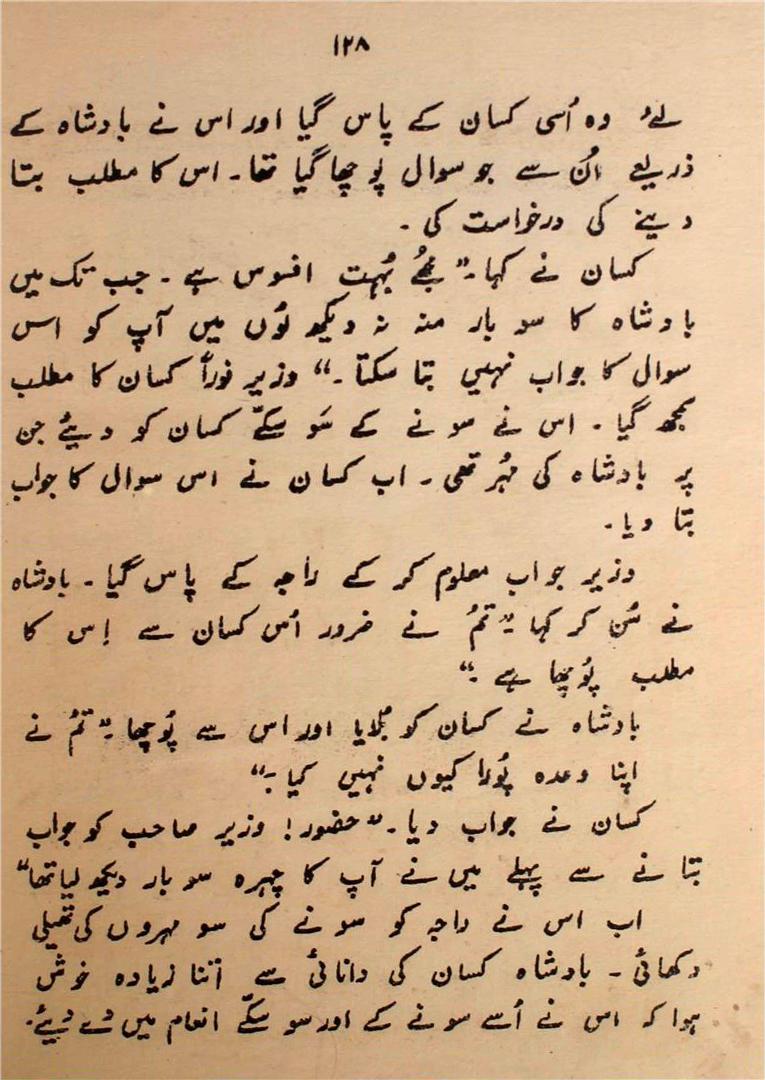 ۱۲۸
لئے وہ اُسی کسان کے پاس گیا اور اس نے بادشاہ کے
ذریعے اُن سے جو سوال پُوچھا گیا تھا۔ اس کا مطلب بتا
دینے کی درخواست کی۔
کسان نے کہا۔" مجھے بُہت افسوس ہے۔ جب تک میں
بادشاہ کا سو بار منہ نہ دیکھ لُوں میں آپ کو اس
سوال کا جواب نہیں بتا سکتا۔" وزیر فوراً کسان کا مطلب
سمجھ گیا۔ اس نے سونے کے سَو سکّے کسان کو دیئے جن
پر بادشاہ کی مُہر تھی۔ اب کسان نے اس سوال کا جواب
بتا دیا۔
وزیر جواب معلوم کر کے راجہ کے پاس گیا۔ بادشاہ
نے سُن کر کہا۔" تمُ نے ضرور اُس کسان سے اِس کا
مطلب پُوچھا ہے۔"
بادشاہ نے کسان کو بُلایا اور اس سے پُوچھا۔" تمُ نے
اپنا وعدہ پُورا کیوں نہیں کیا۔"
کسان نے جواب دیا۔" حضور! وزیر صاحب کو جواب
بتانے سے پہلے میں نے آپ کا چہرہ سو بار دیکھ لیا تھا"
اب اس نے راجہ کو سونے کی سو مہروں کی تھیلی
دکھائی۔ بادشاہ کسان کی دانائی سے اتنا زیادہ خوش
ہوا کہ اس نے اُسے سونے کے اور سو سکّے انعام میں دے دیئے۔